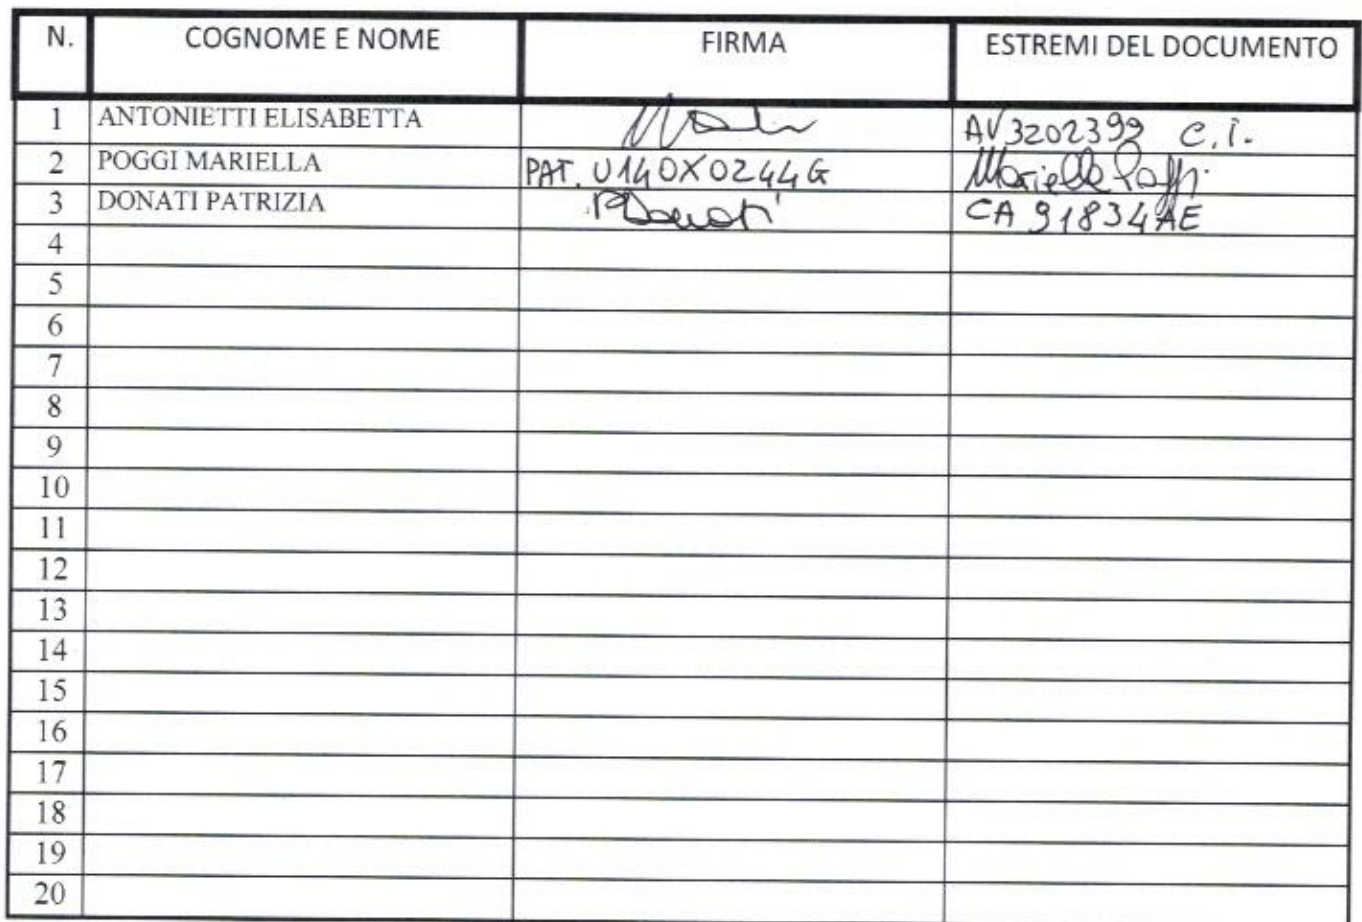 N. COGNOME E NOME FIRMA ESTREMI DEL DOCUMENTO
1 ANTONIETTI ELISABETTA AV3202399 C.I.
2 POGGI MARIELLA PAT. U140X0244G Mariella Poggi
3 DONATI PATRIZIA PDonati CA91834AE
4
5
6
7
8
9
10
11
12
13
14
15
16
17
18
19
20